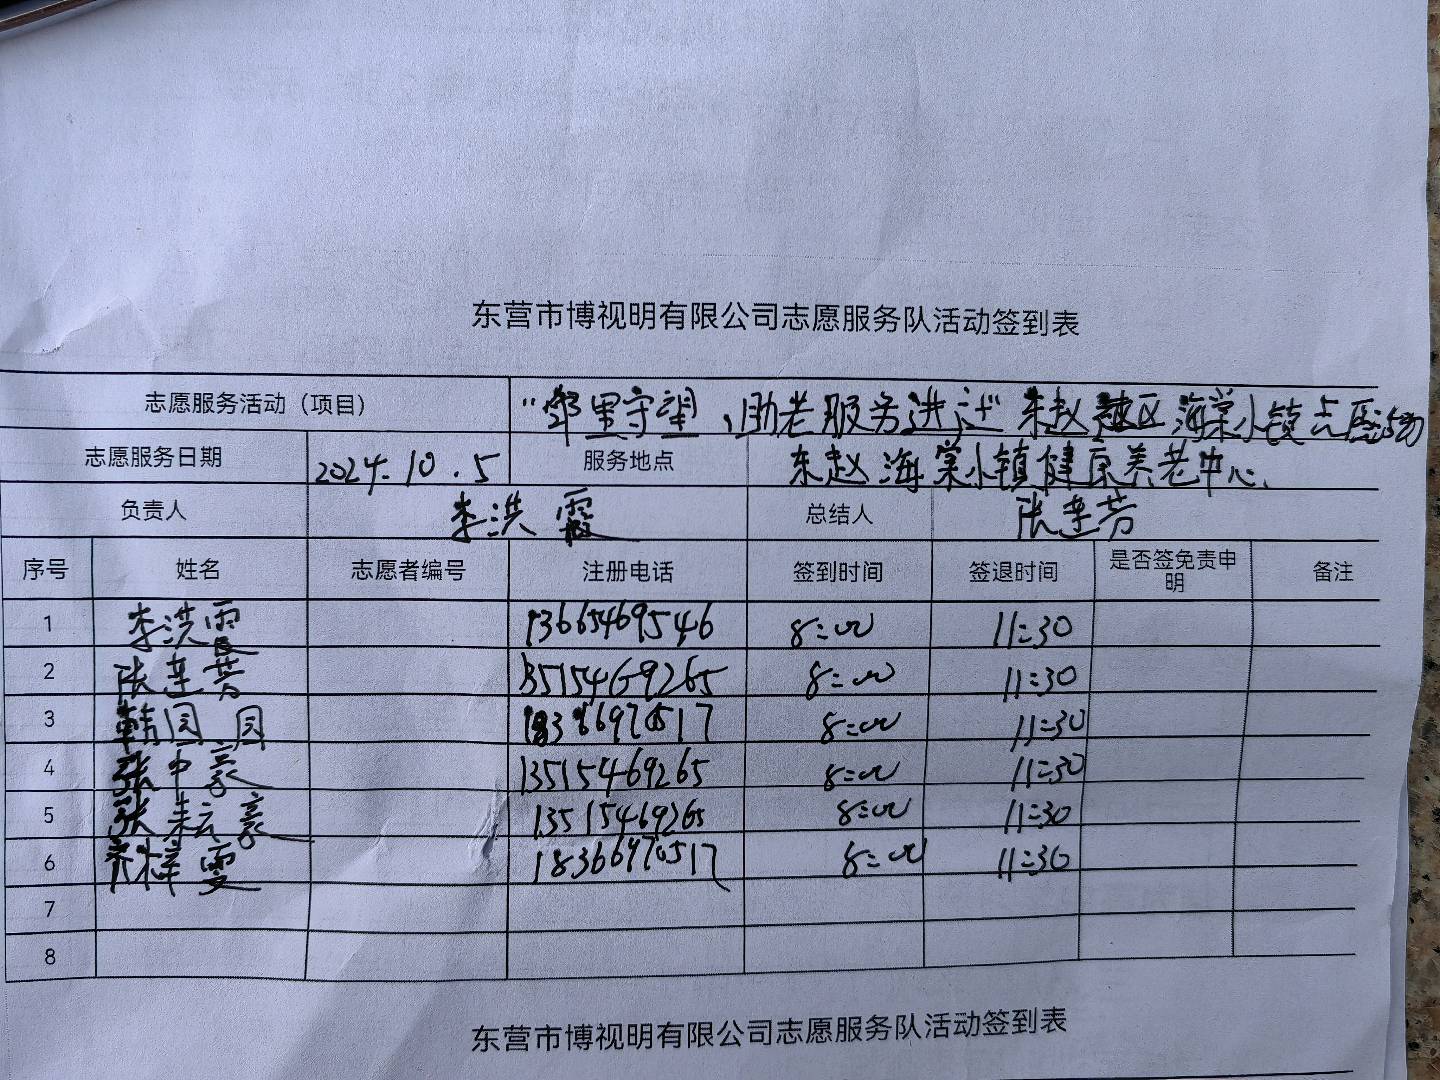 东营市博视明有限公司志愿服务队活动签到表
志愿服务活动（项目） “邻里守望，助老服务进 东赵 海棠小镇志愿活动
志愿服务日期 2024.10.5 服务地点 东赵海棠小镇健康养老中心.
负责人 李洪霞 总结人 张莲芳
序号 姓名 志愿者编号 注册电话 签到时间 签退时间 是否签免责申明 备注
1 李洪霞 13665469546 8:00 11:30
2 张莲芳 13515469265 8:00 11:30
3 韩园园 18366970517 8:00 11:30
4 张中豪 13515469265 8:00 11:30
5 张耘豪 13515469265 8:00 11:30
6 雯 18366970517 8:00 11:30
7
8
东营市博视明有限公司志愿服务队活动签到表